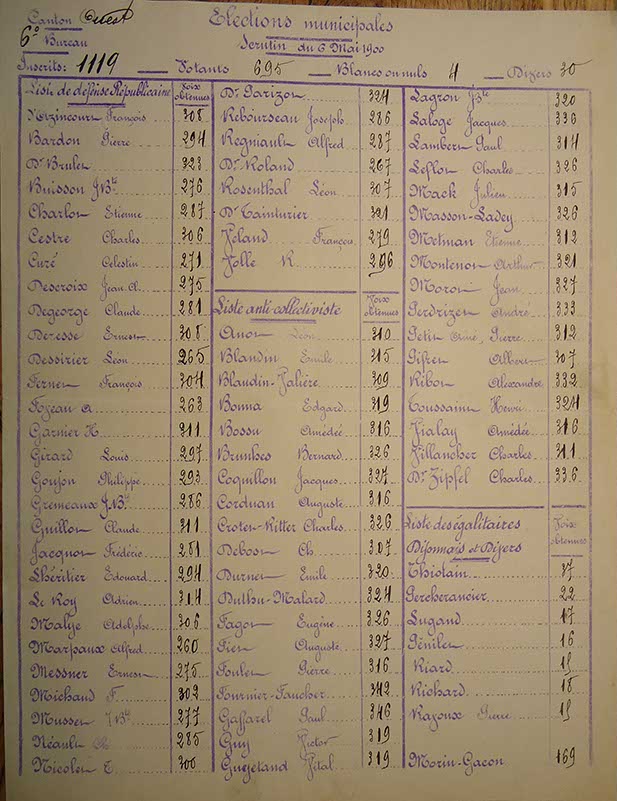 Canton Ouest
Elections municipales
6e Bureau
Scrutin du 6 Mai 1900
Inscrits: 1119 — Votants 695 — Blancs ou nuls 4 — Divers 30
Liste de défense Républicaine Voix obtenues
d'Azincourt François 308
Bardon Pierre 294
Dr Brulet 323
Buisson J.Bte 276
Charlot Etienne 287
Cestre Charles 306
Curé Celestin 271
Descroix Jean Cl. 275
Degeorge Claude 281
Deresse Ernest 308
Dessirier Léon 265
Fernet François 304
Fizeau A 263
Garnier H 311
Girard Louis 297
Goujon Philippe 293
Gremeaux J.Bte 286
Guillot Claude 311
Jacquot Frédéric 281
Lhéritier Edouard 294
Le Roy Adrien 314
Malye Adolphe 306
Marpaux Alfred 260
Messner Ernest 275
Michaud F. 302
Musset J Bte 277
Néault Ch 285
Nicolet E 300
Dr Parizot 324
Rebourseau Joseph 286
Regniault Alfred 287
Dr Roland 267
Rosenthal Léon 307
Dr Tainturier 321
Veland François 279
Volle R 296
Liste anti-collectiviste Voix obtenues
Anot Léon 310
Blandin Emile 315
Blaudin-Valière 309
Bonna Edgard 319
Bossu Amédée 316
Brunhes Bernard 326
Coquillot Jacques 327
Corduan Auguste 316
Crotet-Ritter Charles 326
Debost Ch. 307
Durnet Emile 320
Duthu-Malard 324
Fagot Eugène 326
Fiet Auguste 327
Foulet Pierre 316
Fournier-Faucher 342
Gaffarel Paul 346
Guy Victor 319
Guyétand Vital 319
Lagron J.Bte 320
Laloge Jacques 330
Lambert Paul 314
Leflot Charles 326
Mack Julien 315
Masson-Ladey 326
Metman Etienne 312
Montenot Arthur 321
Morot Jean 327
Perdrizet André 333
Petit Aimé, Pierre 312
Piffret Albert 307
Ribot Alexandre 332
Toussaint Henri 324
Vialay Amédée 316
Villancher Charles 311
Dr Zipfel Charles 336
Liste des égalitaires Voix obtenues
Dijonnais et Divers
Thiolain 37
Percherancier 22
Lugand 17
Génilet 16
Riard 15
Richard 18
Razoux Pierre 15
Morin-Gacon 169